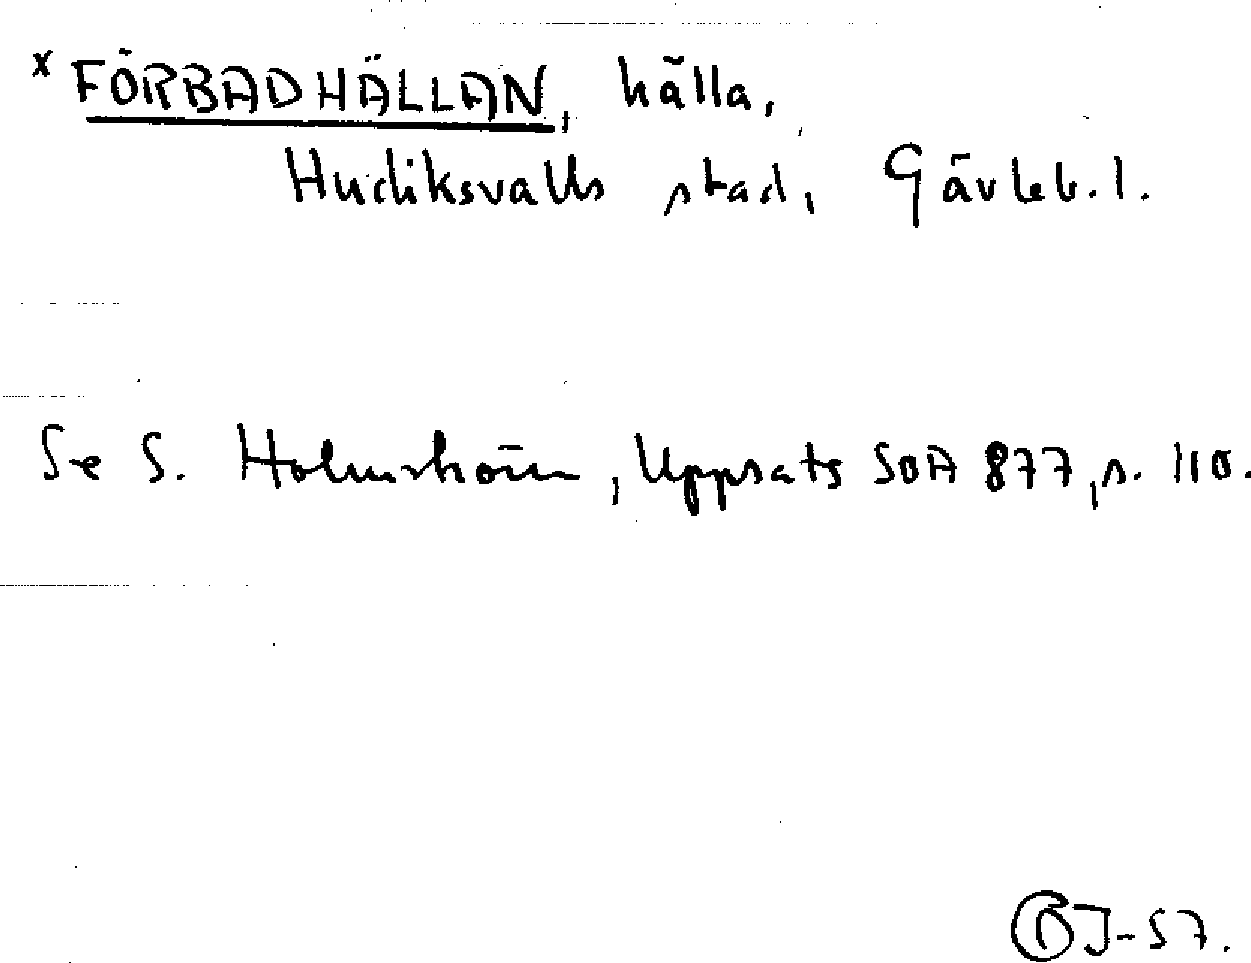 x FÖRBADHÄLLAN, hälla,
Hudiksvalls stad, Gävleb. l.
Se S. Holmström, Uppsats SOA 877, s. 110.
J-57.